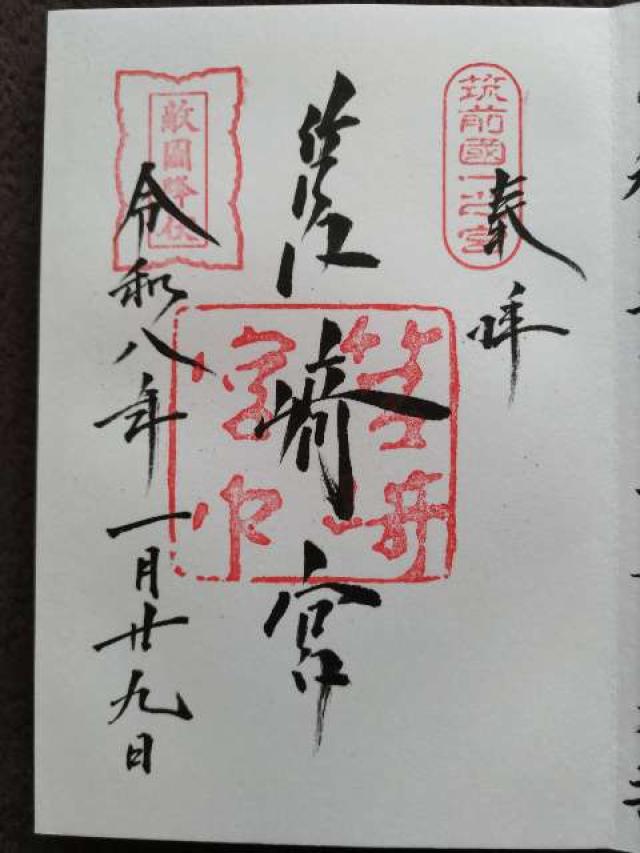 筑前國一之宮
奉拝
筥崎宮
敵國降伏
令和八年一月廿九日